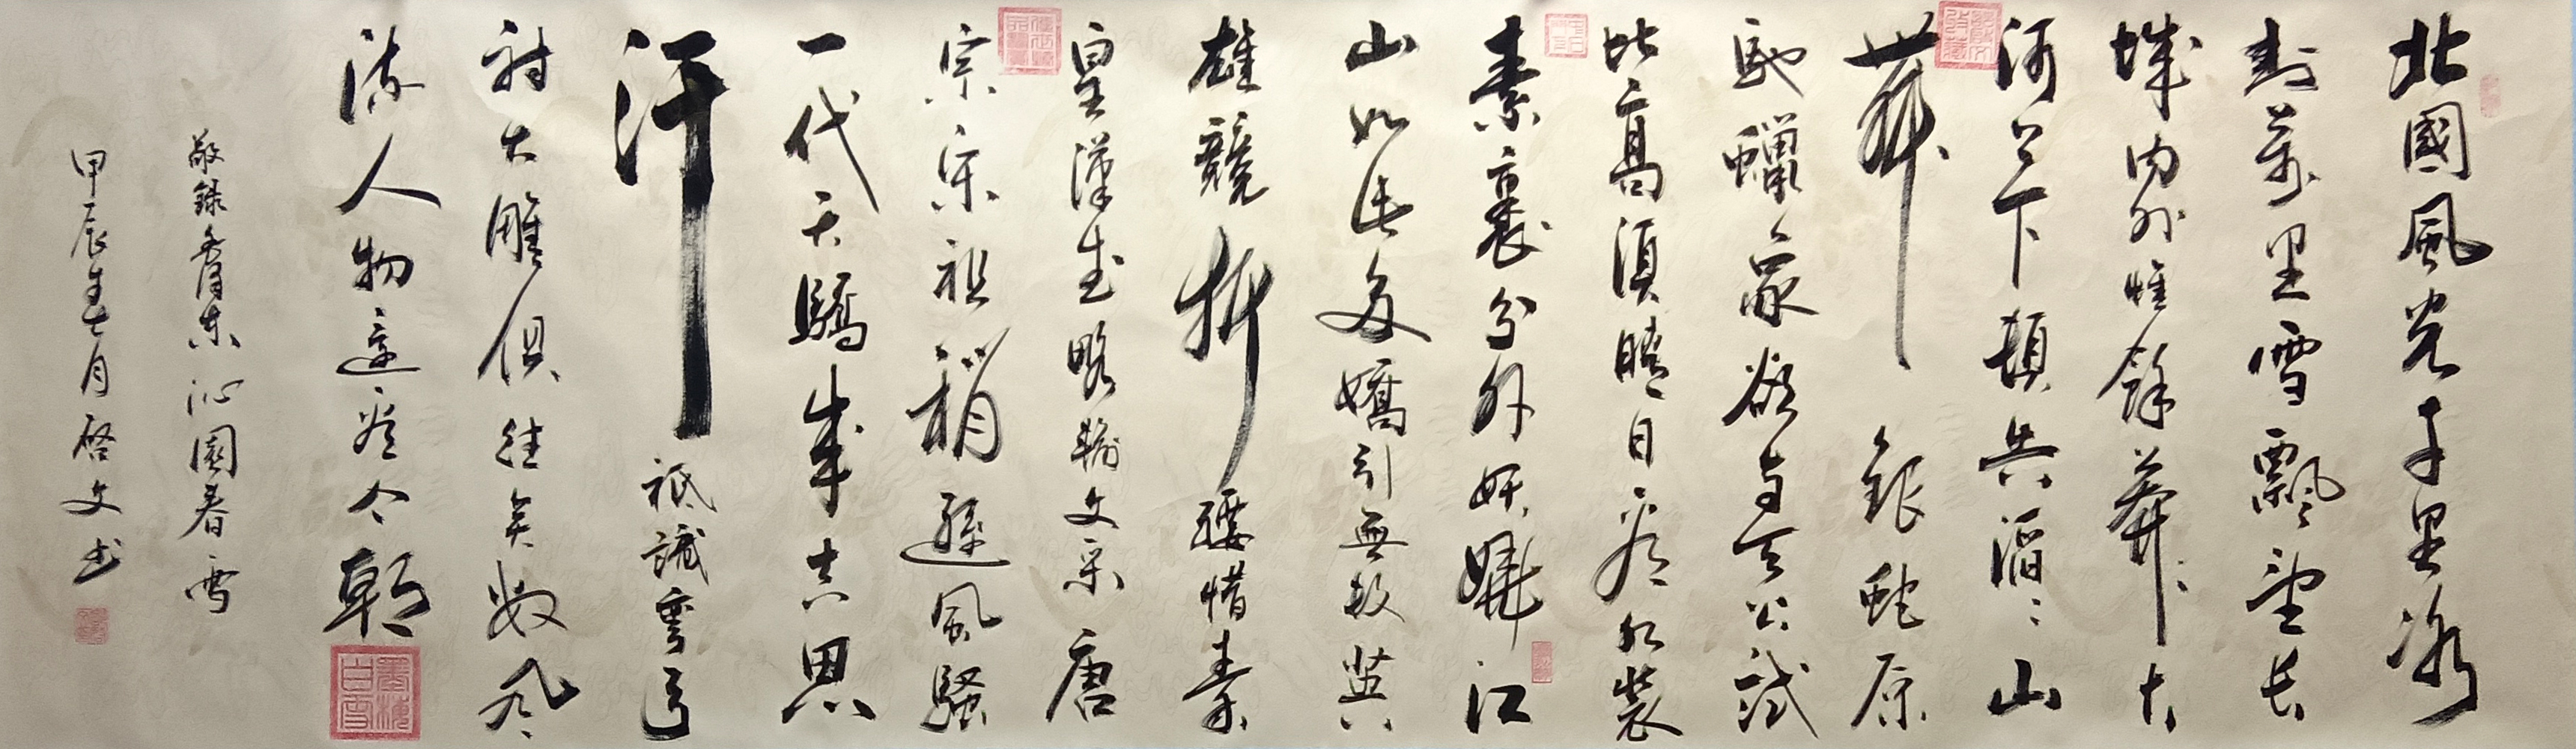 北國風光千里冰
封萬里雪飄望長
城内外惟餘莽々大
河上下頓失滔々山
舞銀蛇原
馳蠟象欲與天公試
比高須晴日看紅裝
素裹分外妖嬈江
山如此多嬌引無數英
雄競折腰惜秦
皇漢武略輸文采唐
宗宋祖稍遜風騷
一代天驕成吉思
汗祇識彎弓
射大雕俱往矣數風
流人物還看今朝
敬錄毛澤东沁園春雪
甲辰年七月啓文书